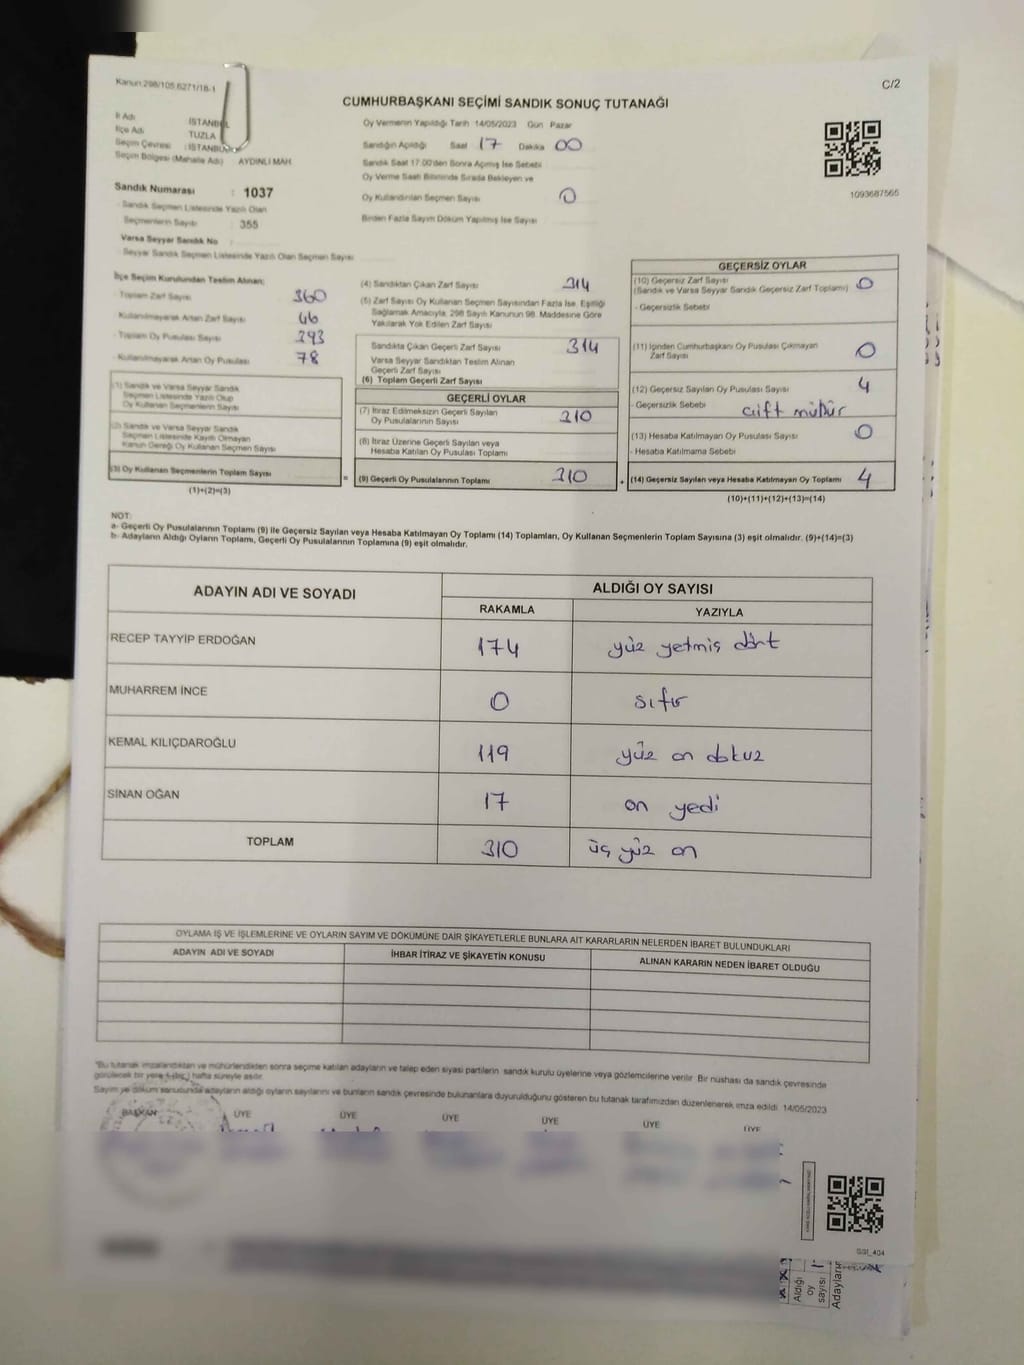 Kanun 298/105,6271/18-1
C/2
CUMHURBAŞKANI SEÇİMİ SANDIK SONUÇ TUTANAĞI
İl Adı İSTANBUL
İlçe Adı TUZLA
Seçim Çevresi : İSTANBUL
Seçim Bölgesi (Mahalle Adı) AYDINLI MAH
Sandık Numarası : 1037
Sandık Seçmen Listesinde Yazılı Olan
Seçmenlerin Sayısı 355
Varsa Seyyar Sandık No
Seyyar Sandık Seçmen Listesinde Yazılı Olan Seçmen Sayısı
Oy Vermenin Yapıldığı Tarih 14/05/2023 Gün Pazar
Sandığın Açıldığı Saat 17 Dakika 00
Sandık Saat 17.00'den Sonra Açılmış İse Sebebi
Oy Verme Saati Bitiminde Sırada Bekleyen ve
Oy Kullandırılan Seçmen Sayısı 0
Birden Fazla Sayım Döküm Yapılmış İse Sayısı
1093687565
İlçe Seçim Kurulundan Teslim Alınan:
Toplam Zarf Sayısı 360
Kullanılmayarak Artan Zarf Sayısı 46
Toplam Oy Pusulası Sayısı 393
Kullanılmayarak Artan Oy Pusulası 78
(1) Sandık ve Varsa Seyyar Sandık
Seçmen Listesinde Yazılı Olup
Oy Kullanan Seçmenlerin Sayısı
(2) Sandık ve Varsa Seyyar Sandık
Seçmen Listesinde Kayıtlı Olmayan
Kanun Gereği Oy Kullanan Seçmen Sayısı
(3) Oy Kullanan Seçmenlerin Toplam Sayısı
(1)+(2)=(3)
=
(4) Sandıktan Çıkan Zarf Sayısı 314
(5) Zarf Sayısı Oy Kullanan Seçmen Sayısından Fazla İse, Eşitliği
Sağlamak Amacıyla, 298 Sayılı Kanunun 98. Maddesine Göre
Yakılarak Yok Edilen Zarf Sayısı
Sandıkta Çıkan Geçerli Zarf Sayısı 314
Varsa Seyyar Sandıktan Teslim Alınan
Geçerli Zarf Sayısı
(6) Toplam Geçerli Zarf Sayısı
GEÇERLİ OYLAR
(7) İtiraz Edilmeksizin Geçerli Sayılan
Oy Pusulalarının Sayısı 310
(8) İtiraz Üzerine Geçerli Sayılan veya
Hesaba Katılan Oy Pusulası Toplamı
(9) Geçerli Oy Pusulalarının Toplamı 310
+
GEÇERSİZ OYLAR
(10) Geçersiz Zarf Sayısı 0
(Sandık ve Varsa Seyyar Sandık Geçersiz Zarf Toplamı)
- Geçersizlik Sebebi
(11) İçinden Cumhurbaşkanı Oy Pusulası Çıkmayan
Zarf Sayısı 0
(12) Geçersiz Sayılan Oy Pusulası Sayısı 4
- Geçersizlik Sebebi çift mühür
(13) Hesaba Katılmayan Oy Pusulası Sayısı 0
- Hesaba Katılmama Sebebi
(14) Geçersiz Sayılan veya Hesaba Katılmayan Oy Toplamı 4
(10)+(11)+(12)+(13)=(14)
NOT:
a- Geçerli Oy Pusulalarının Toplamı (9) ile Geçersiz Sayılan veya Hesaba Katılmayan Oy Toplamı (14) Toplamları, Oy Kullanan Seçmenlerin Toplam Sayısına (3) eşit olmalıdır. (9)+(14)=(3)
b- Adayların Aldığı Oyların Toplamı, Geçerli Oy Pusulalarının Toplamına (9) eşit olmalıdır.
ADAYIN ADI VE SOYADI ALDIĞI OY SAYISI
RAKAMLA YAZIYLA
RECEP TAYYİP ERDOĞAN 174 yüz yetmiş dört
MUHARREM İNCE 0 sıfır
KEMAL KILIÇDAROĞLU 119 yüz on dokuz
SİNAN OĞAN 17 on yedi
TOPLAM 310 üç yüz on
OYLAMA İŞ VE İŞLEMLERİNE VE OYLARIN SAYIM VE DÖKÜMÜNE DAİR ŞİKAYETLERLE BUNLARA AİT KARARLARIN NELERDEN İBARET BULUNDUKLARI
ADAYIN ADI VE SOYADI İHBAR İTİRAZ VE ŞİKAYETİN KONUSU ALINAN KARARIN NEDEN İBARET OLDUĞU
*Bu tutanak imzalandıktan ve mühürlendikten sonra seçime katılan adayların ve talep eden siyasi partilerin sandık kurulu üyelerine veya gözlemcilerine verilir. Bir nüshası da sandık çevresinde
görülecek bir yere 1 (bir) hafta süreyle asılır.
Sayım ve döküm sonucunda adayların aldığı oyların sayılarını ve bunların sandık çevresinde bulunanlara duyurulduğunu gösteren bu tutanak tarafımızdan düzenlenerek imza edildi. 14/05/2023
BAŞKAN ÜYE ÜYE ÜYE ÜYE ÜYE ÜYE
GSI_404
Aldığı
oy
sayısı
Adayların